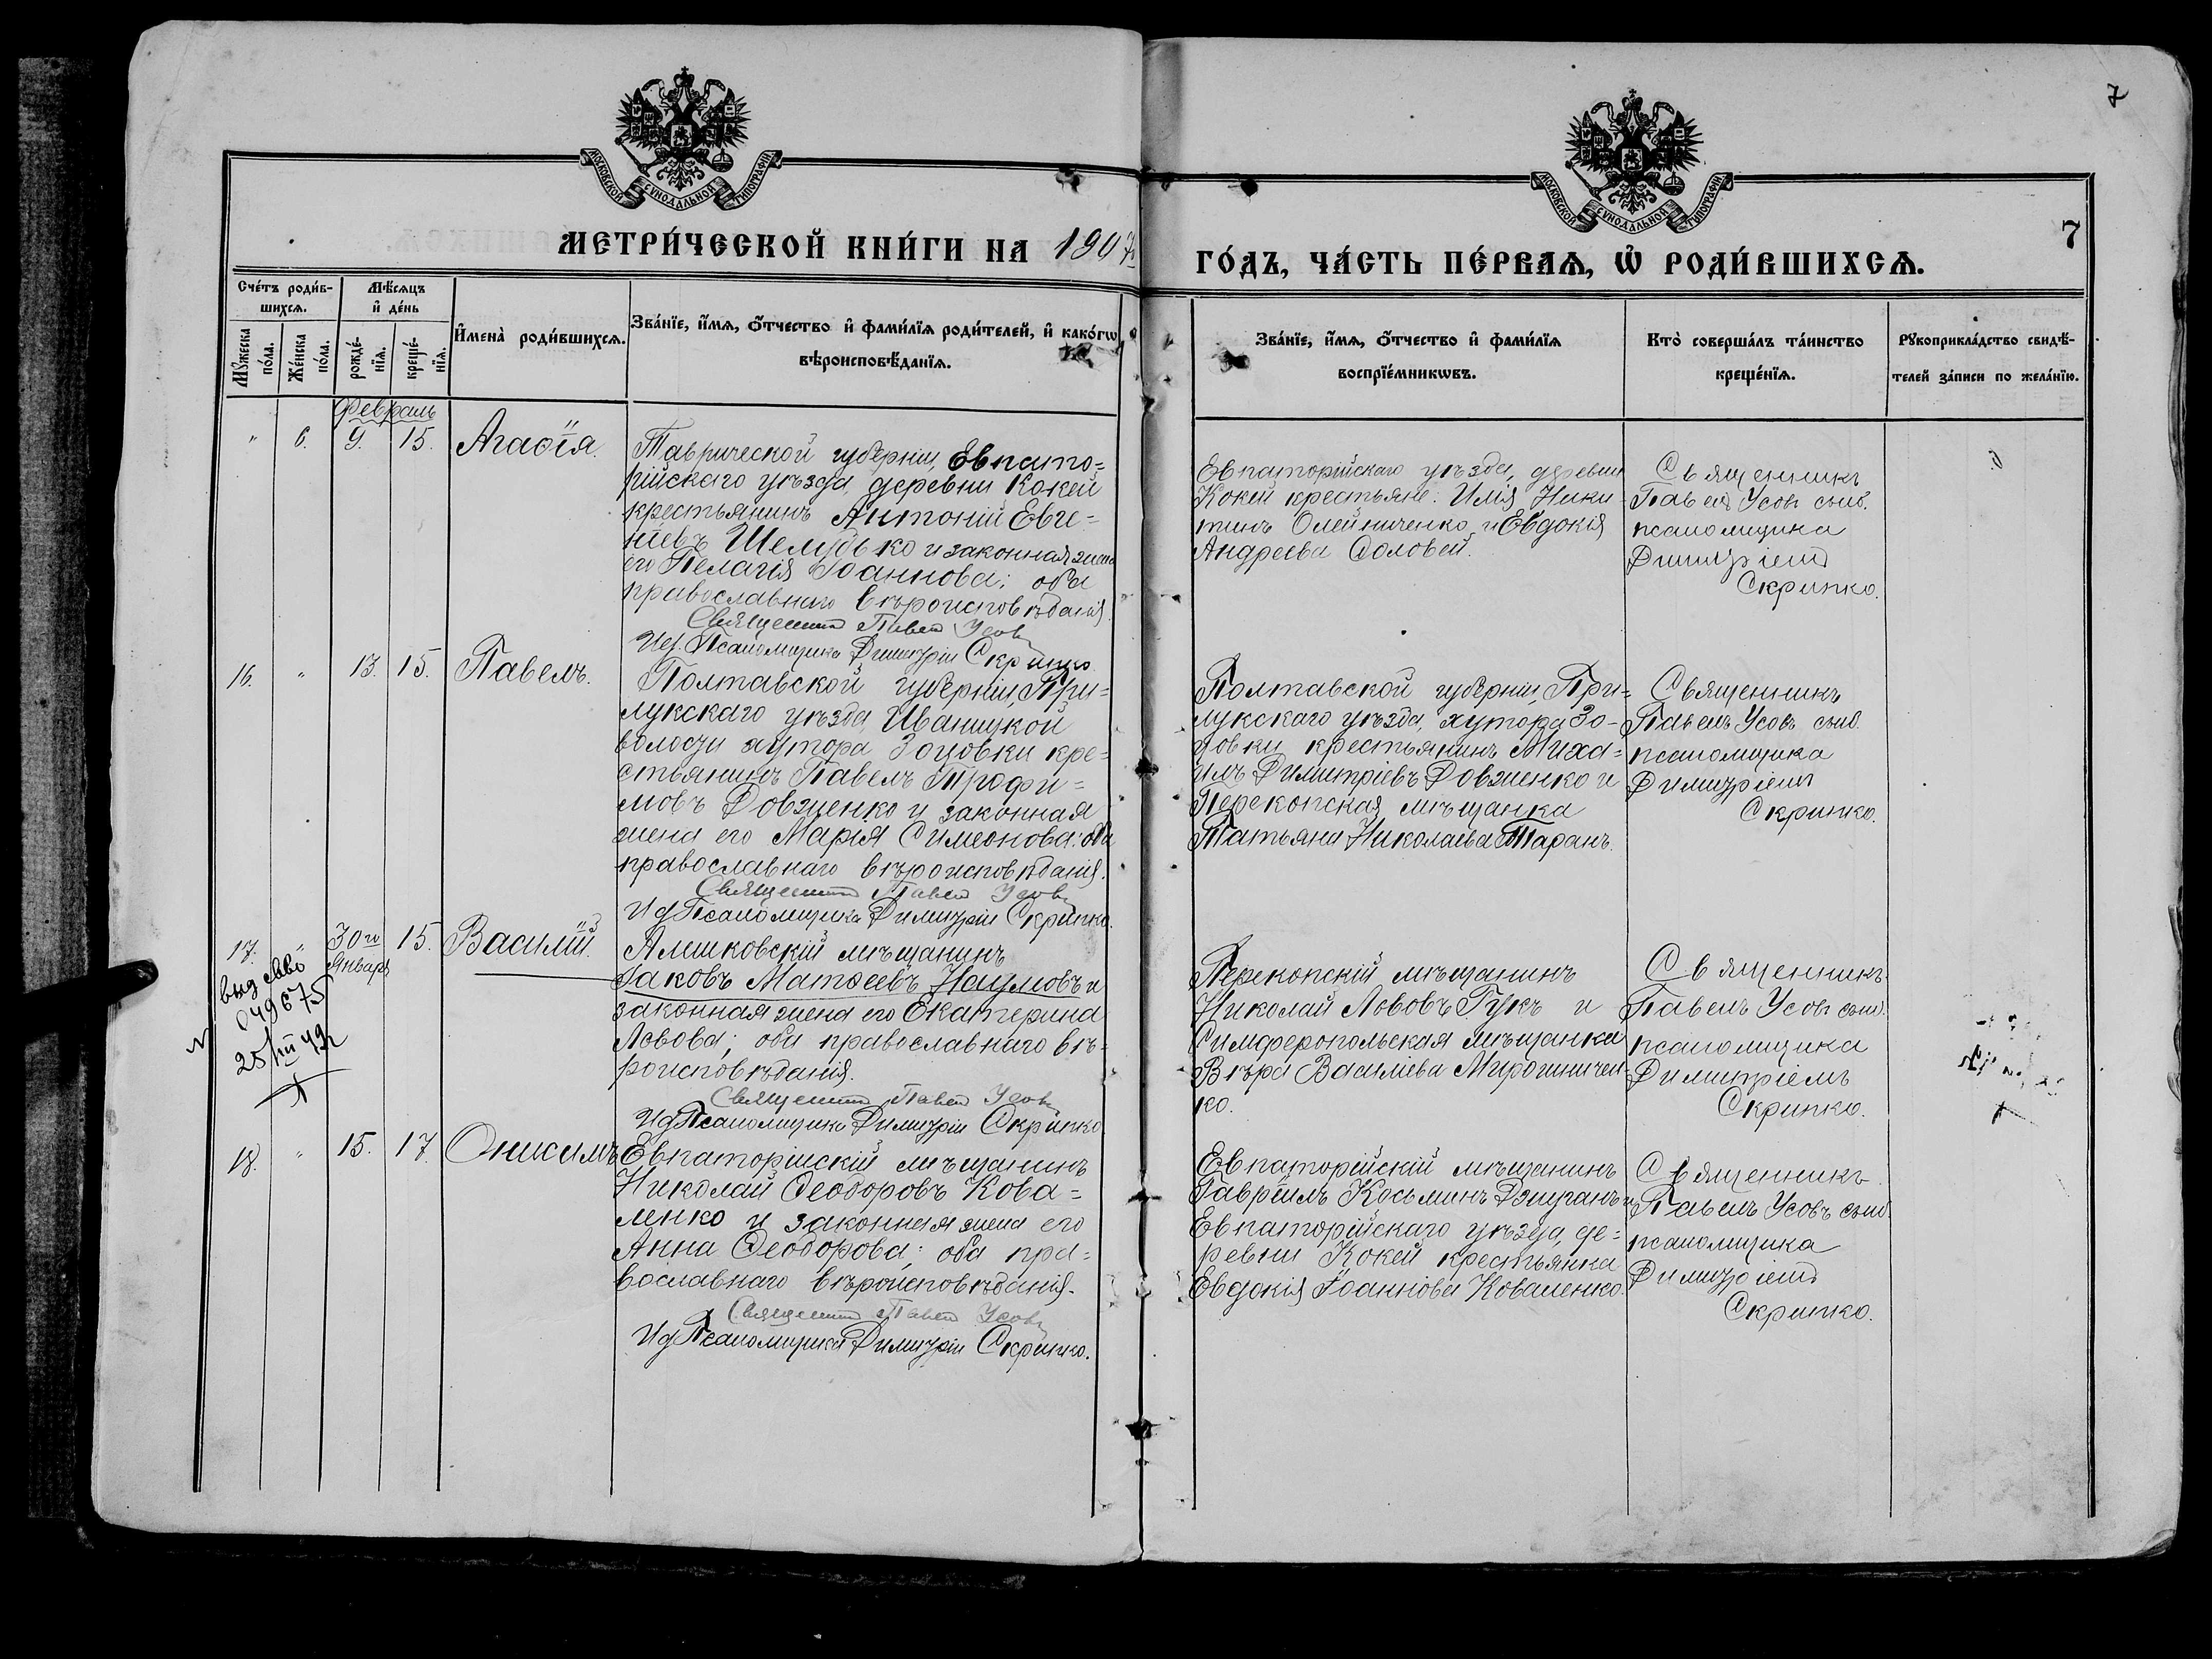 7
МОСКОВСКОЙ СѴНОДАЛЬНОЙ ТИПОГРАФІИ.
МОСКОВСКОЙ СѴНОДАЛЬНОЙ ТИПОГРАФІИ.
МЕТРИ́ЧЕСКОЙ КНИ́ГИ НА 1907
ГО́ДЪ, ЧА́СТЬ ПЕ́РВАѦ, Ѡ҆ РОДИ́ВШИХСѦ.
7
Сче́тъ роди́в-
шихсѧ.
Мꙋжеска по́ла.
Же́нска по́ла.
Мѣ́сѧцъ
и҆ де́нь
рожде́-
нїѧ.
креще́-
нїѧ.
И҆мена̀ роди́вшихсѧ.
Зва́нїе, и҆́мѧ, ѻ҆́тчество и҆ фами́лїѧ роди́телей, и҆ како́гѡ
вѣроисповѣ́данїѧ.
Зва́нїе, и҆́мѧ, ѻ҆́тчество и҆ фами́лїѧ
воспрїе́мникѡвъ.
Кто̀ соверша́лъ та́инство
креще́нїѧ.
Рꙋкоприкла́дство свидѣ́-
телей за́писи по жела́нїю.
Февраль
" 6. 9. 15. Агаѳія.
Таврической губерніи, Евпато=
рійскаго уѣзда, деревни Кокей
крестьянинъ Антоній Евге=
ніевъ Шелудько и законная жена
его Пелагія Іоаннова; оба
православнаго вѣроисповѣданія.
Священникъ Павелъ Усовъ
И.д. Псаломщика Димитрій Скрипко
Евпаторійскаго уѣзда, деревни
Кокей крестьяне: Илія Ники-
тинъ Олейниченко и Евдокія
Андреева Соловей.
Священникъ
Павелъ Усовъ съ и.д.
псаломщика
Димитріемъ
Скрипко.
16. " 13. 15. Павелъ.
Полтавской губерніи, При=
лукскаго уѣзда, Иваницкой
волости хутора Зоцовки кре=
стьянинъ Павелъ Трофи=
мовъ Довженко и законная
жена его Марія Симеонова: оба
православнаго вѣроисповѣданія.
Священникъ Павелъ Усовъ
И.д. Псаломщика Димитрій Скрипко.
Полтавской губерніи, При=
лукскаго уѣзда, хутора Зо-
цовки крестьянинъ Миха=
илъ Димитріевъ Довженко и
Перекопская мѣщанка
Татьяна Николаева Таранъ.
Священникъ
Павелъ Усовъ съ и.д.
псаломщика
Димитріемъ
Скрипко.
17. " 30го 15. Василій.
Январ
выд свво
049675
25/III 49г
Алешковскій мѣщанинъ
Іаковъ Матѳеевъ Наумовъ и
законная жена его Екатерина
Львова; оба православнаго вѣ=
роисповѣданія.
Священникъ Павелъ Усовъ
И.д. Псаломщика Димитрій Скрипко
Перекопскій мѣщанинъ
Николай Львовъ Гукъ и
Симферопольская мѣщанка
Вѣра Василіева Мирошничен-
ко.
Священникъ
Павелъ Усовъ съ и.д.
псаломщика
Димитріемъ
Скрипко.
18. " 15. 17. Онисимъ
Евпаторійскій мѣщанинъ
Николай Ѳеодоровъ Кова=
ленко и законная жена его
Анна Ѳеодорова; оба пра=
вославнаго вѣроисповѣданія.
Священникъ Павелъ Усовъ
И.д. Псаломщика Димитрій Скрипко.
Евпаторійскій мѣщанинъ
Гавріилъ Косьминъ и
Евпаторійскаго уѣзда, де=
ревни Кокей крестьянка
Евдокія Іоаннова Коваленко.
Священникъ
Павелъ Усовъ съ и.д.
псаломщика
Димитріемъ
Скрипко.